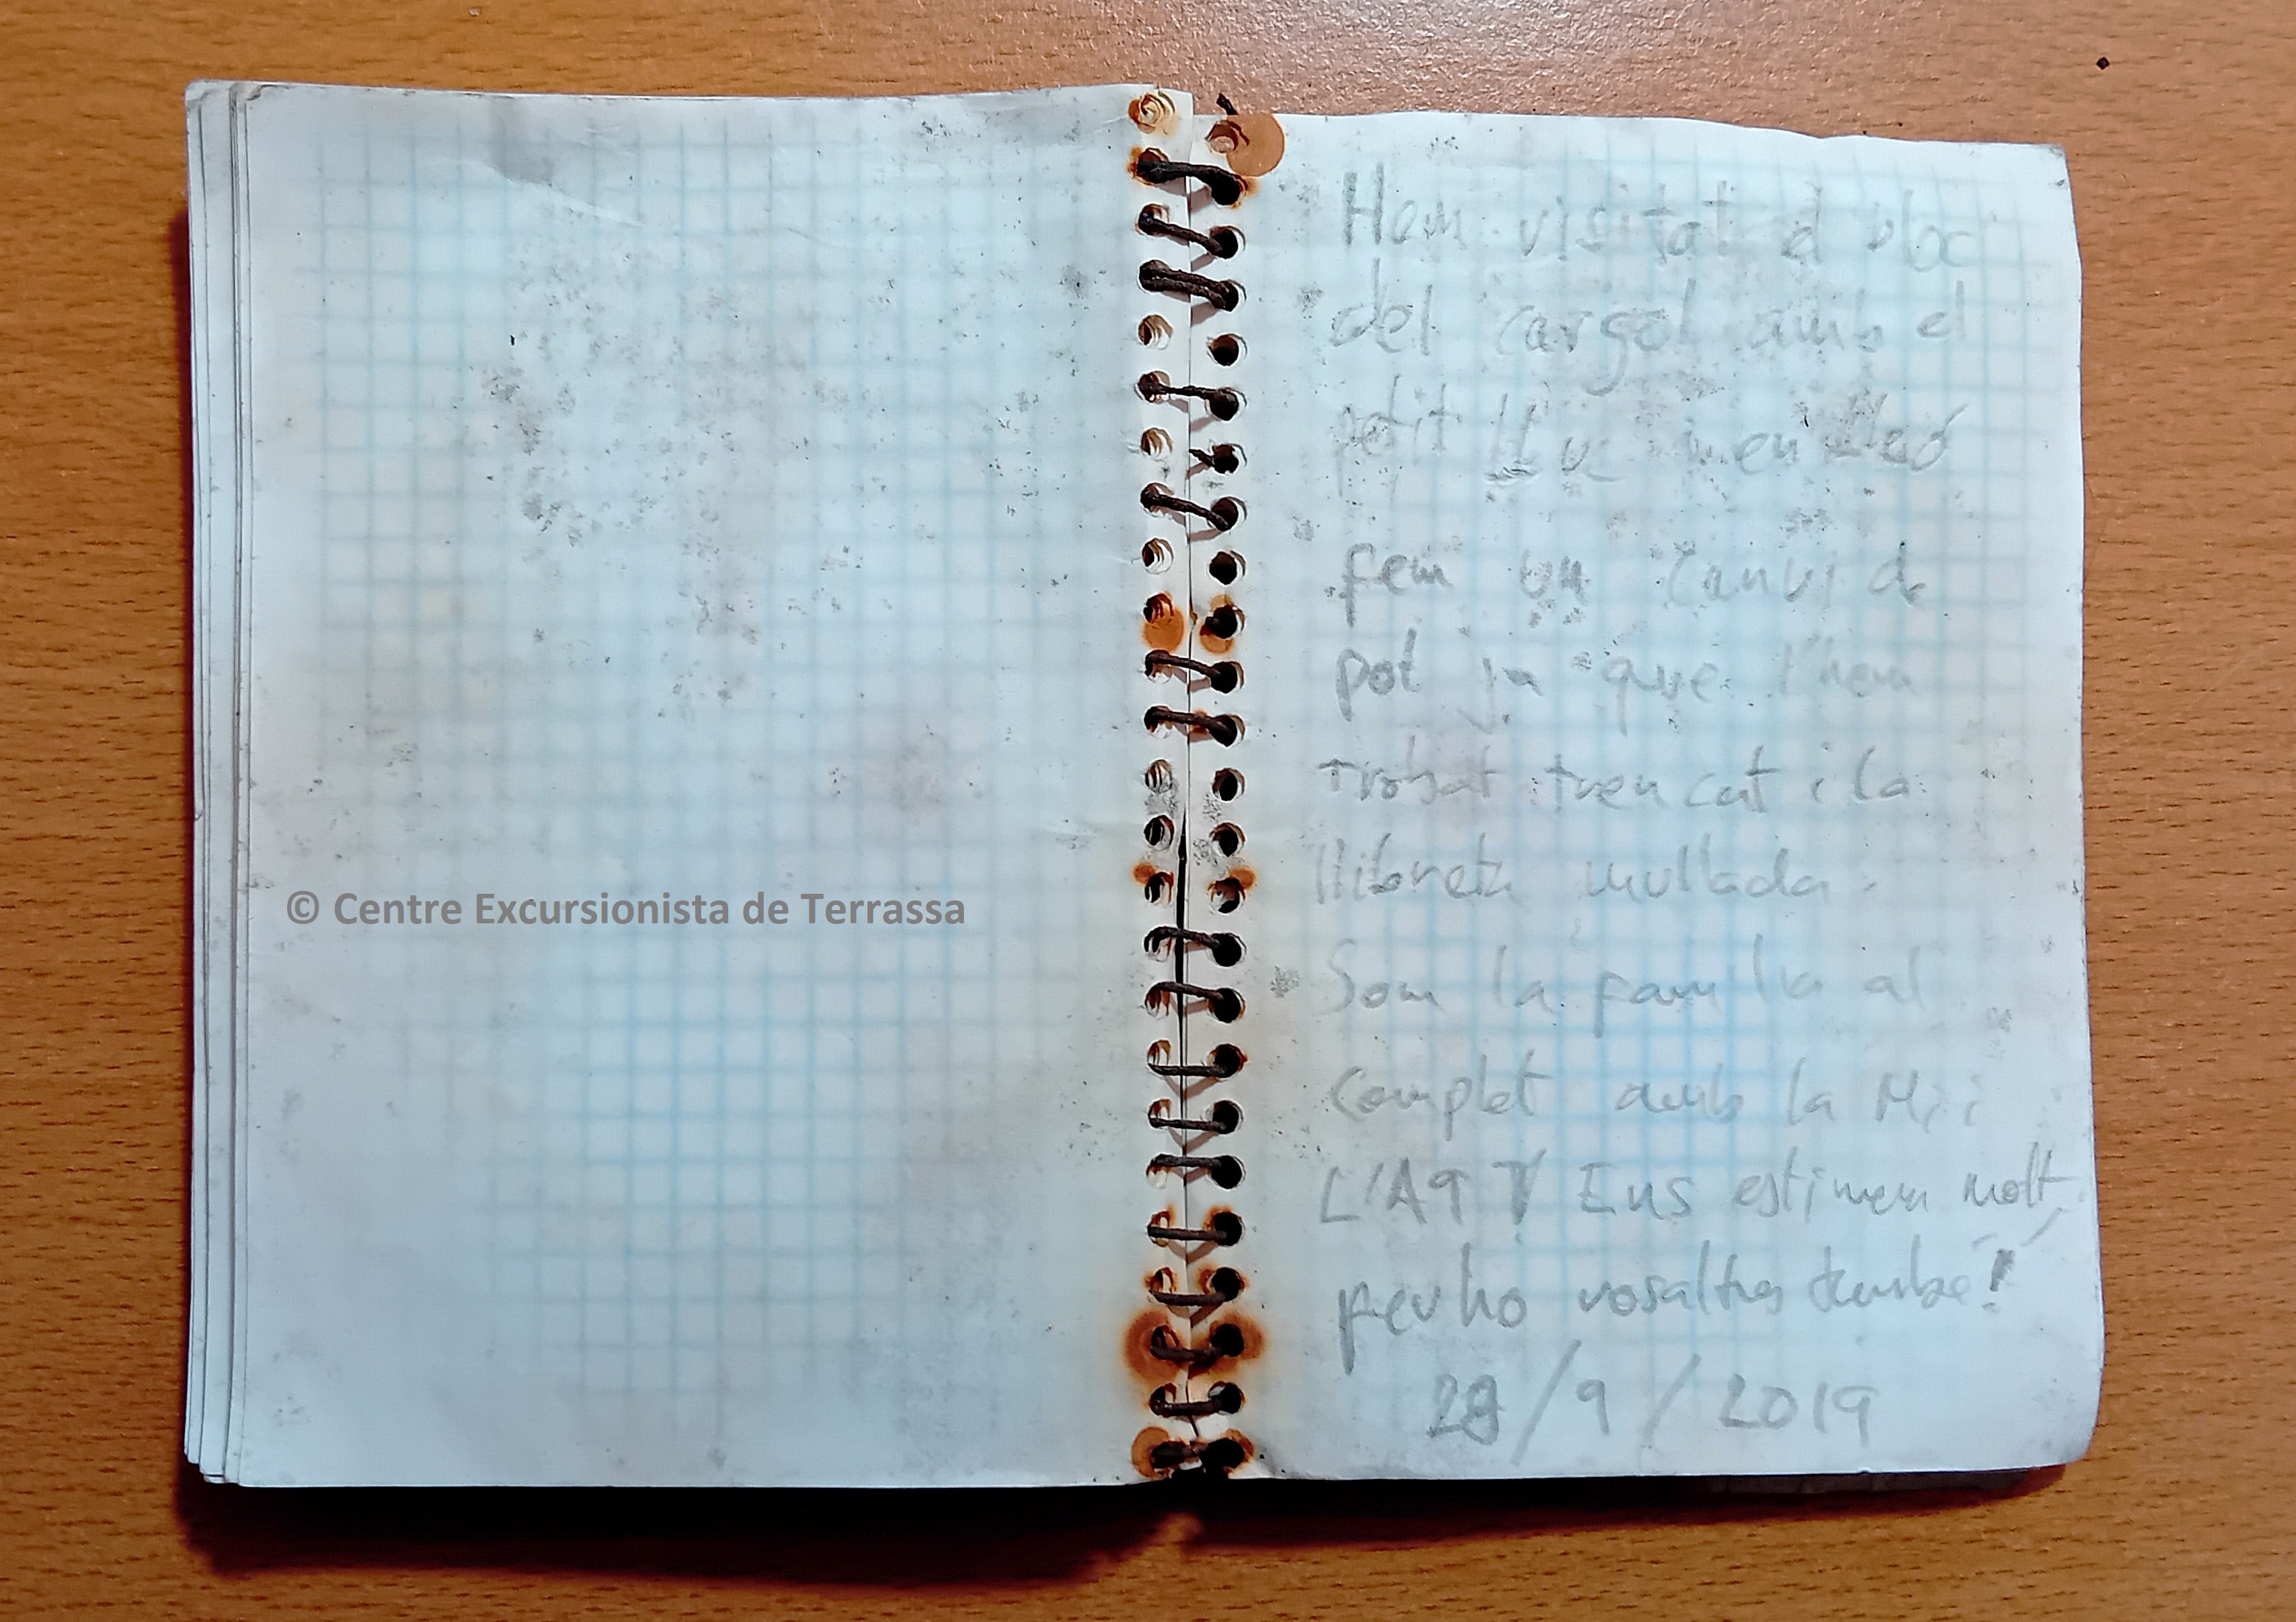 © Centre Excursionista de Terrassa
Hem visitat el bloc
del cargol amb el
petit Lluc i en
fem un canvi de
pot ja que l'hem
trobat trencat i la
llibreta mullada.
Som la familia al
complet amb la
Ens estimem molt,
feu ho vosaltres també!
28/9/2019